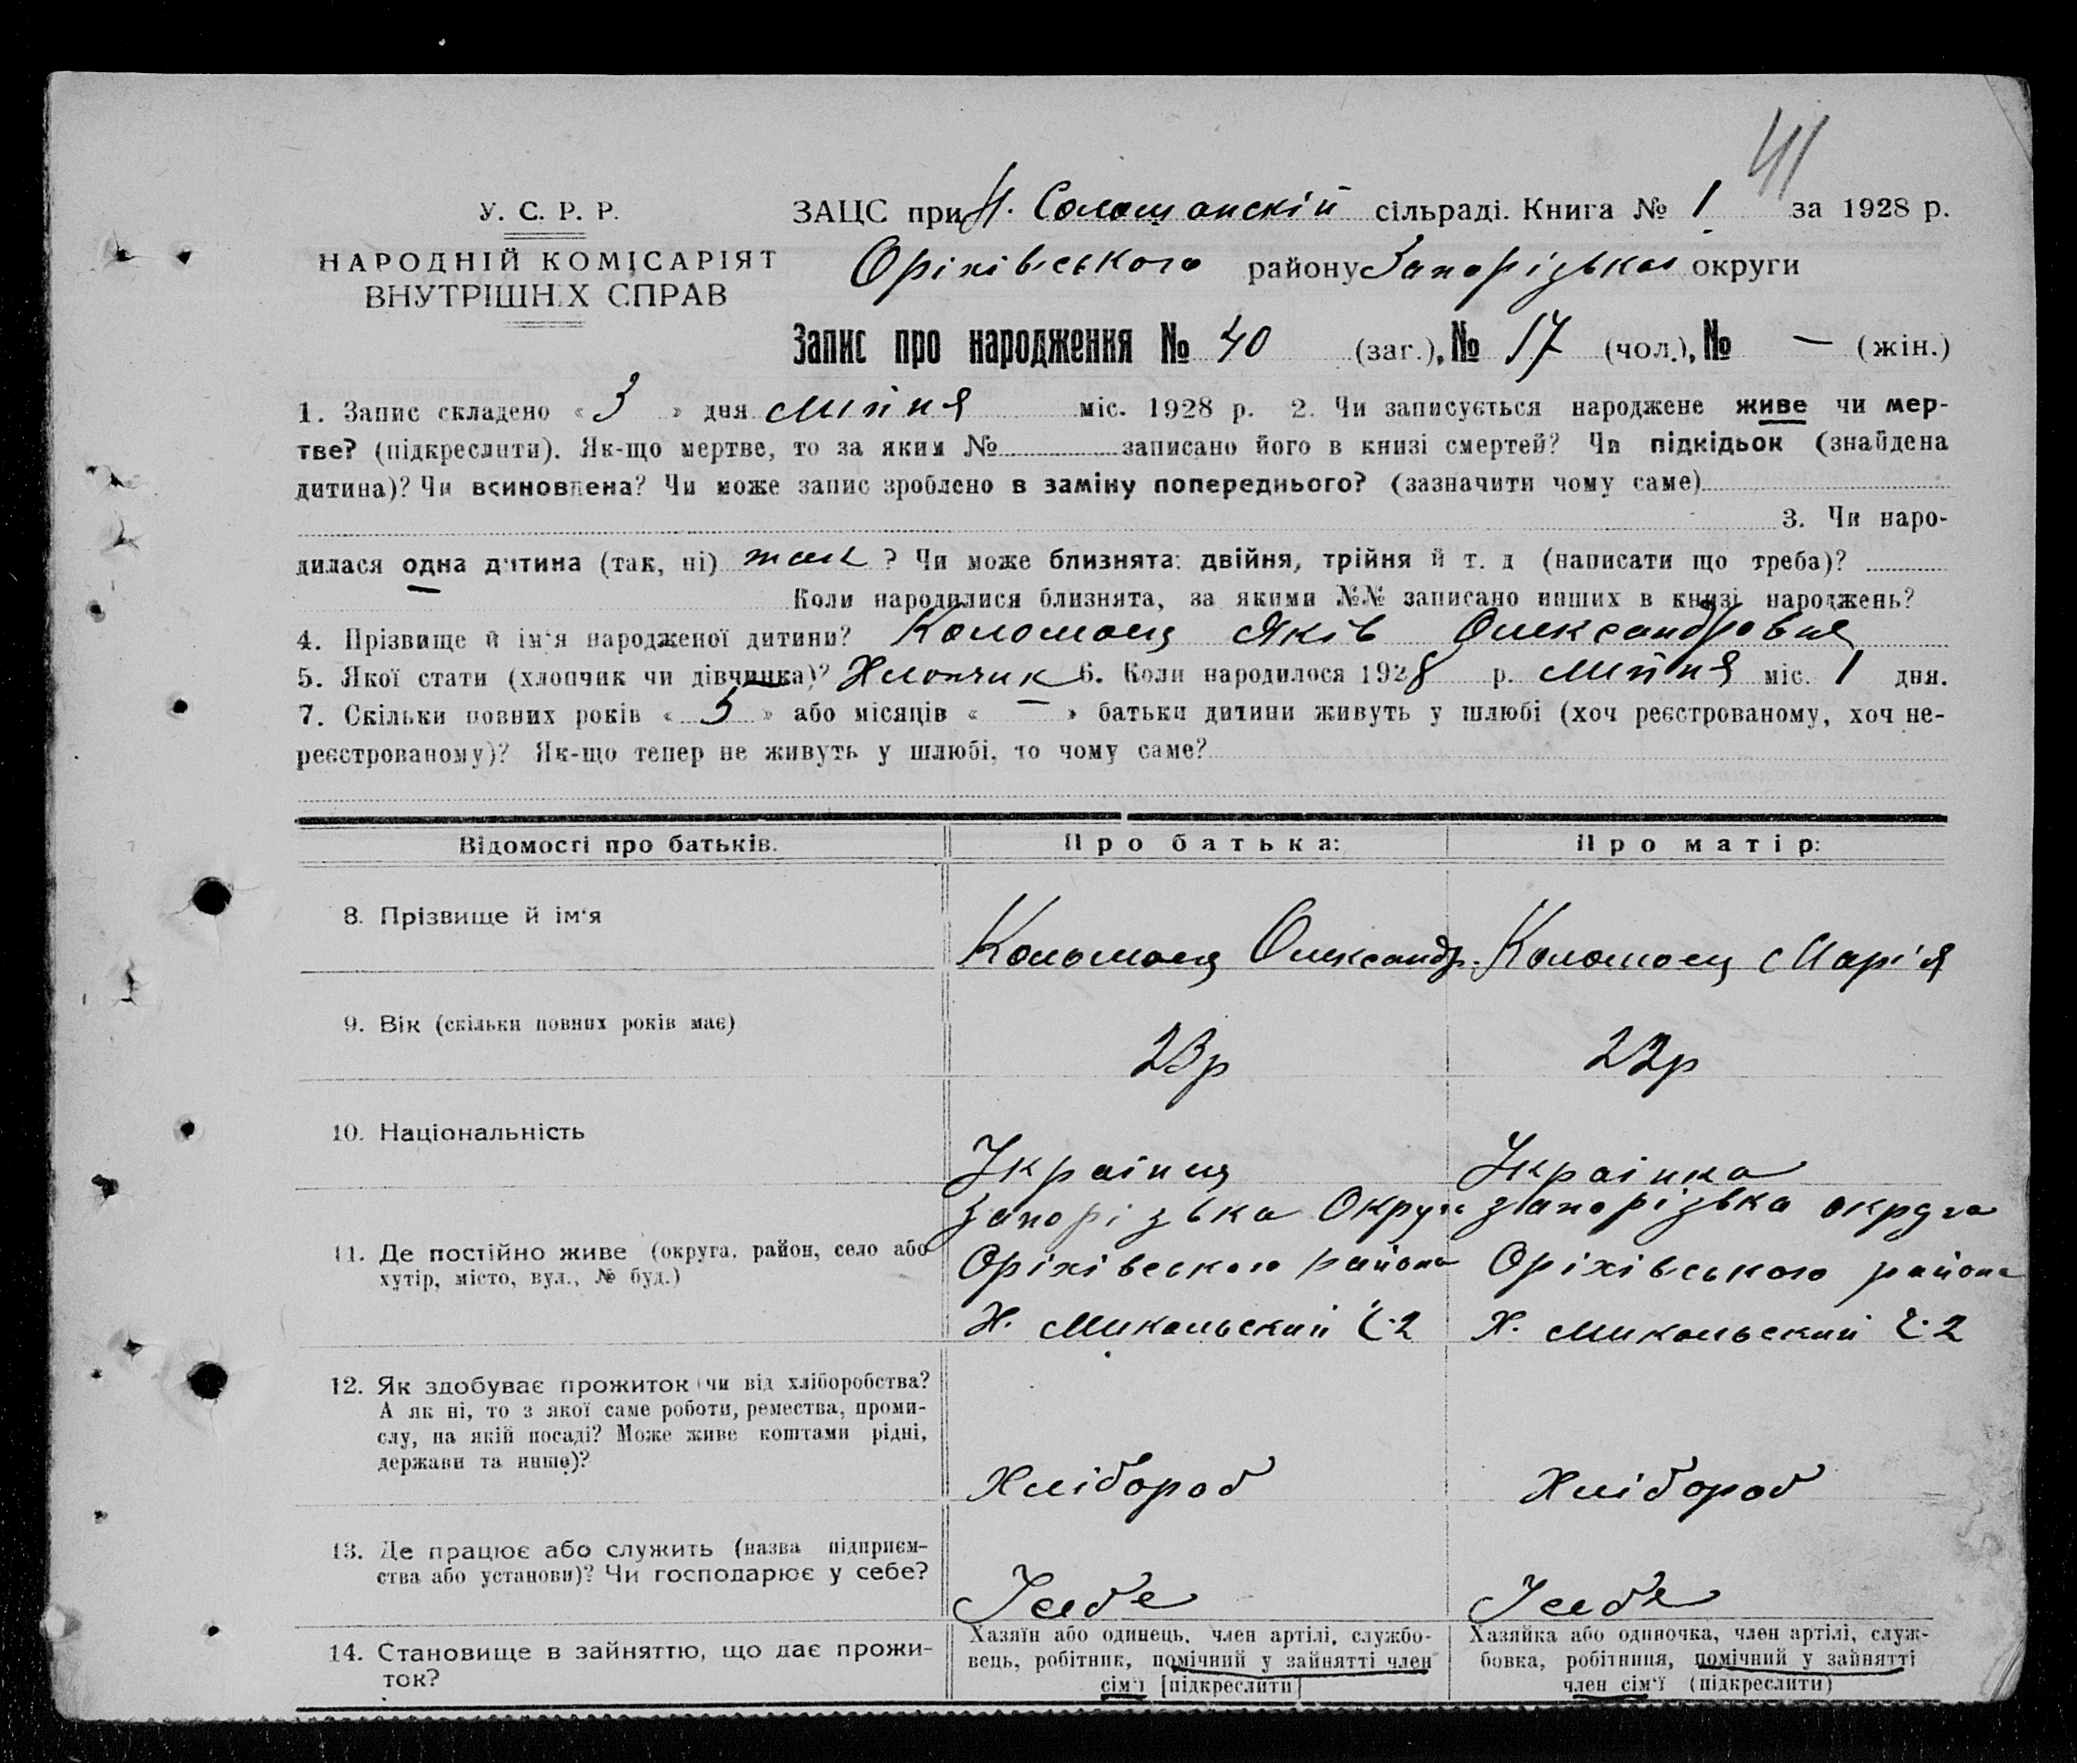 41
У. С. Р. Р.
НАРОДНІЙ КОМІСАРІЯТ
ВНУТРІШНІХ СПРАВ
ЗАЦС при Н. Солошанскій сільраді. Книга № 1 за 1928 р.
Оріхівського району Запорізькоі округи
Запис про народження № 40 (заг.), № 17 (чол.), № — (жін.)
1. Запис складено «3» дня липня міс. 1928 р. 2. Чи записується народжене живе чи мер-
тве? (підкреслити). Як-що мертве, то за яким № записано його в книзі смертей? Чи підкідьок (знайдена
дитина)? Чи всиновлена? Чи може запис зроблено в заміну попереднього? (зазначити чому саме)
3. Чи наро-
дилася одна дитина (так, ні) так ? Чи може близнята: двійня, трійня й т. д (написати що треба)?
Коли народилися близнята, за якими №№ записано инших в книзі народжень?
4. Прізвище й ім'я народженої дитини? Коломоец Яків Олександровия
5. Якої стати (хлопчик чи дівчинка)? Хлопчик 6. Коли народилося 1928 р. липня міс. 1 дня.
7. Скільки повних років «5» або місяців «—» батьки дитини живуть у шлюбі (хоч реєстрованому, хоч не-
реєстрованому)? Як-що тепер не живуть у шлюбі, то чому саме?
Відомості про батьків. Про батька: Про матір:
8. Прізвище й ім'я Коломоец Олександр. Коломоец Марі'я
9. Вік (скільки повних років має) 23р 22р
10. Національність Украінец Украінка
Запорізька Округа Запорізька округа
11. Де постійно живе (округа, район, село або Оріхівського района Оріхівського района
хутір, місто, вул., № буд.)
Х. Микольский Ч.2 Х. Микольский Ч.2
12. Як здобуває прожиток (чи від хліборобства?
А як ні, то з якої саме роботи, ремества, проми-
слу, на якій посаді? Може живе коштами рідні,
держави та инше)?
Хлібороб Хлібороб
13. Де працює або служить (назва підприєм-
ства або установи)? Чи господарює у себе?
У себе У себе
14. Становище в зайняттю, що дає прожи-
ток?
Хазяїн або одинець, член артілі, службо-
вець, робітник, помічний у зайнятті член
сім'ї [підкреслити]
Хазяйка або одиночка, член артілі, служ-
бовка, робітниця, помічний у зайнятті
член сім'ї (підкреслити)